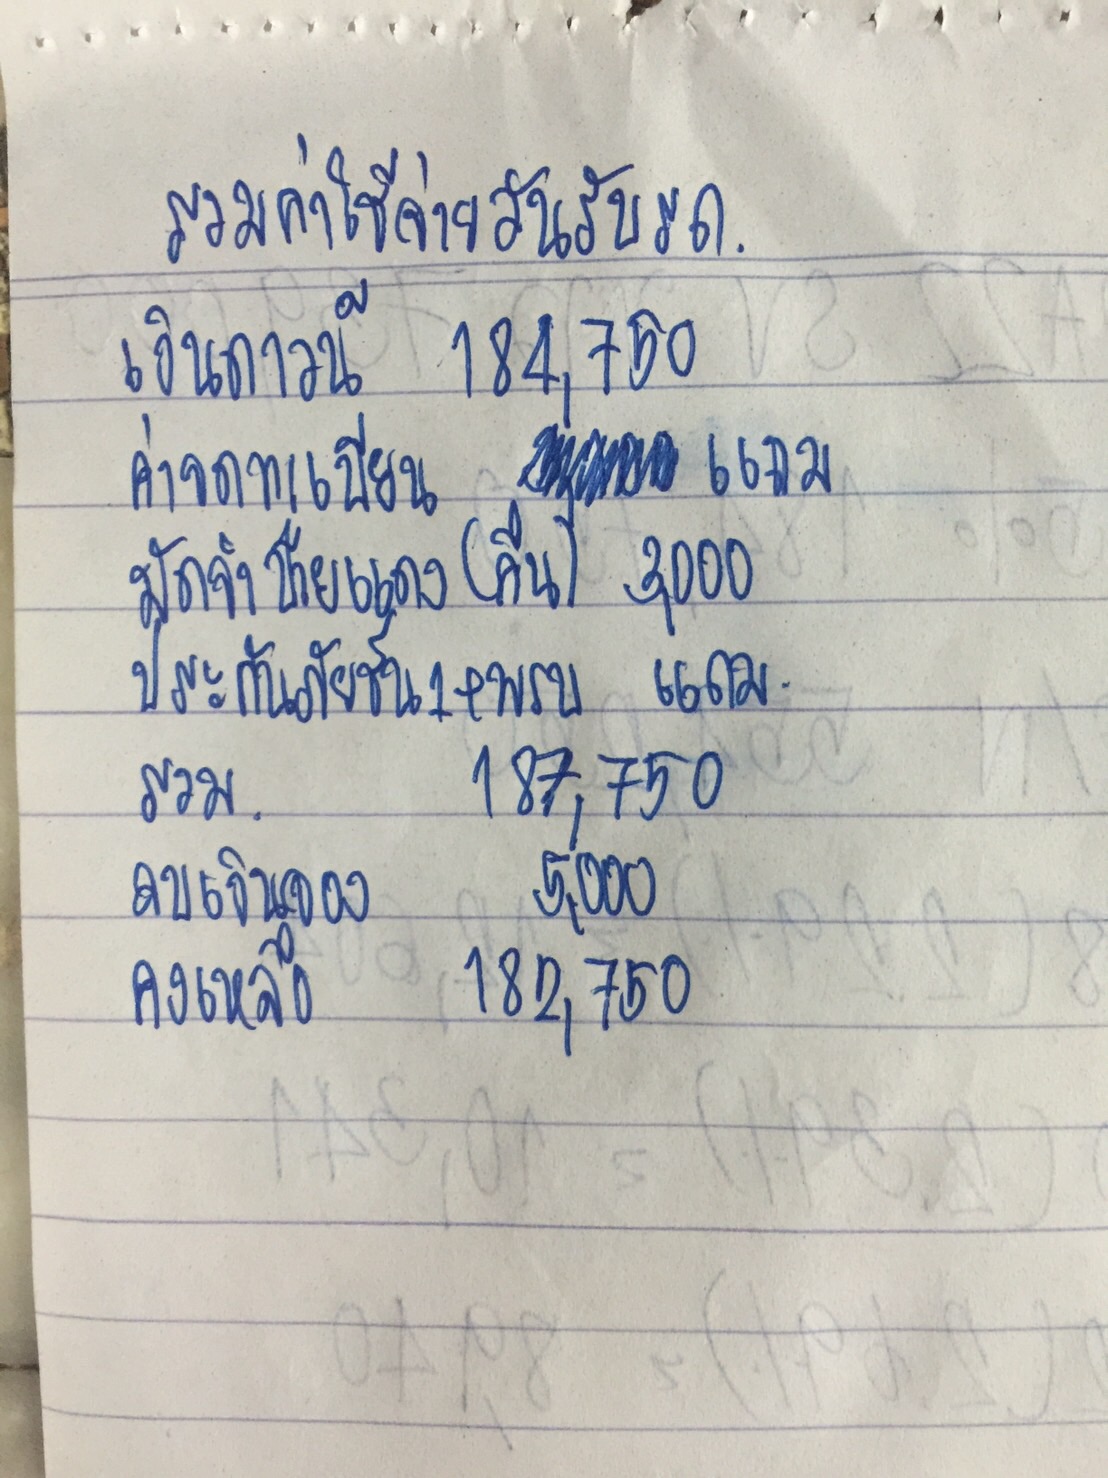 รวมค่าใช้จ่ายวันรับรถ.
เงินดาวน์ 184,750
ค่าจดทะเบียน แถม
มัดจำป้ายแดง (คืน) 3,000
ประกันภัยชั้น 1+พรบ แถม.
รวม. 187,750
ลบเงินจอง 5,000
คงเหลือ 182,750